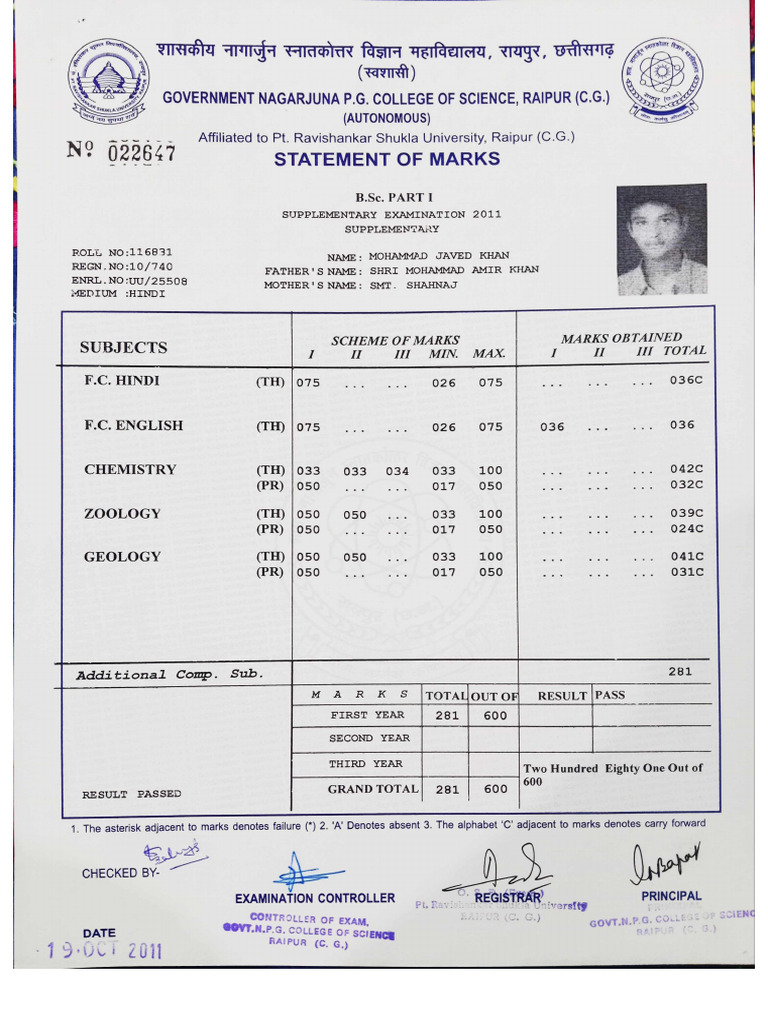 शासकीय नागार्जुन स्नातकोत्तर विज्ञान महाविद्यालय, रायपुर, छत्तीसगढ़
(स्वशासी)
GOVERNMENT NAGARJUNA P.G. COLLEGE OF SCIENCE, RAIPUR (C.G.)
(AUTONOMOUS)
Affiliated to Pt. Ravishankar Shukla University, Raipur (C.G.)
Nº 022647
STATEMENT OF MARKS
B.Sc. PART I
SUPPLEMENTARY EXAMINATION 2011
SUPPLEMENTARY
ROLL NO:116831 NAME: MOHAMMAD JAVED KHAN
REGN.NO:10/740 FATHER'S NAME: SHRI MOHAMMAD AMIR KHAN
ENRL.NO:UU/25508 MOTHER'S NAME: SMT. SHAHNAJ
MEDIUM :HINDI
SUBJECTS SCHEME OF MARKS MARKS OBTAINED
I II III MIN. MAX. I II III TOTAL
F.C. HINDI (TH) 075 ... ... 026 075 ... ... ... 036C
F.C. ENGLISH (TH) 075 ... ... 026 075 036 ... ... 036
CHEMISTRY (TH) 033 033 034 033 100 ... ... ... 042C
(PR) 050 ... ... 017 050 ... ... ... 032C
ZOOLOGY (TH) 050 050 ... 033 100 ... ... ... 039C
(PR) 050 ... ... 017 050 ... ... ... 024C
GEOLOGY (TH) 050 050 ... 033 100 ... ... ... 041C
(PR) 050 ... ... 017 050 ... ... ... 031C
Additional Comp. Sub. 281
M A R K S TOTAL OUT OF RESULT PASS
FIRST YEAR 281 600
SECOND YEAR
THIRD YEAR
Two Hundred Eighty One Out of
600
RESULT PASSED GRAND TOTAL 281 600
1. The asterisk adjacent to marks denotes failure (*) 2. 'A' Denotes absent 3. The alphabet 'C' adjacent to marks denotes carry forward
CHECKED BY-
EXAMINATION CONTROLLER REGISTRAR PRINCIPAL
CONTROLLER OF EXAM,
GOVT.N.P.G. COLLEGE OF SCIENCE
RAIPUR (C. G.)
Pt. Ravishankar Shukla University
RAIPUR (C. G.)
PRINCIPAL
GOVT.N.P.G. COLLEGE OF SCIENC
RAIPUR (C. G.)
DATE
19 OCT 2011